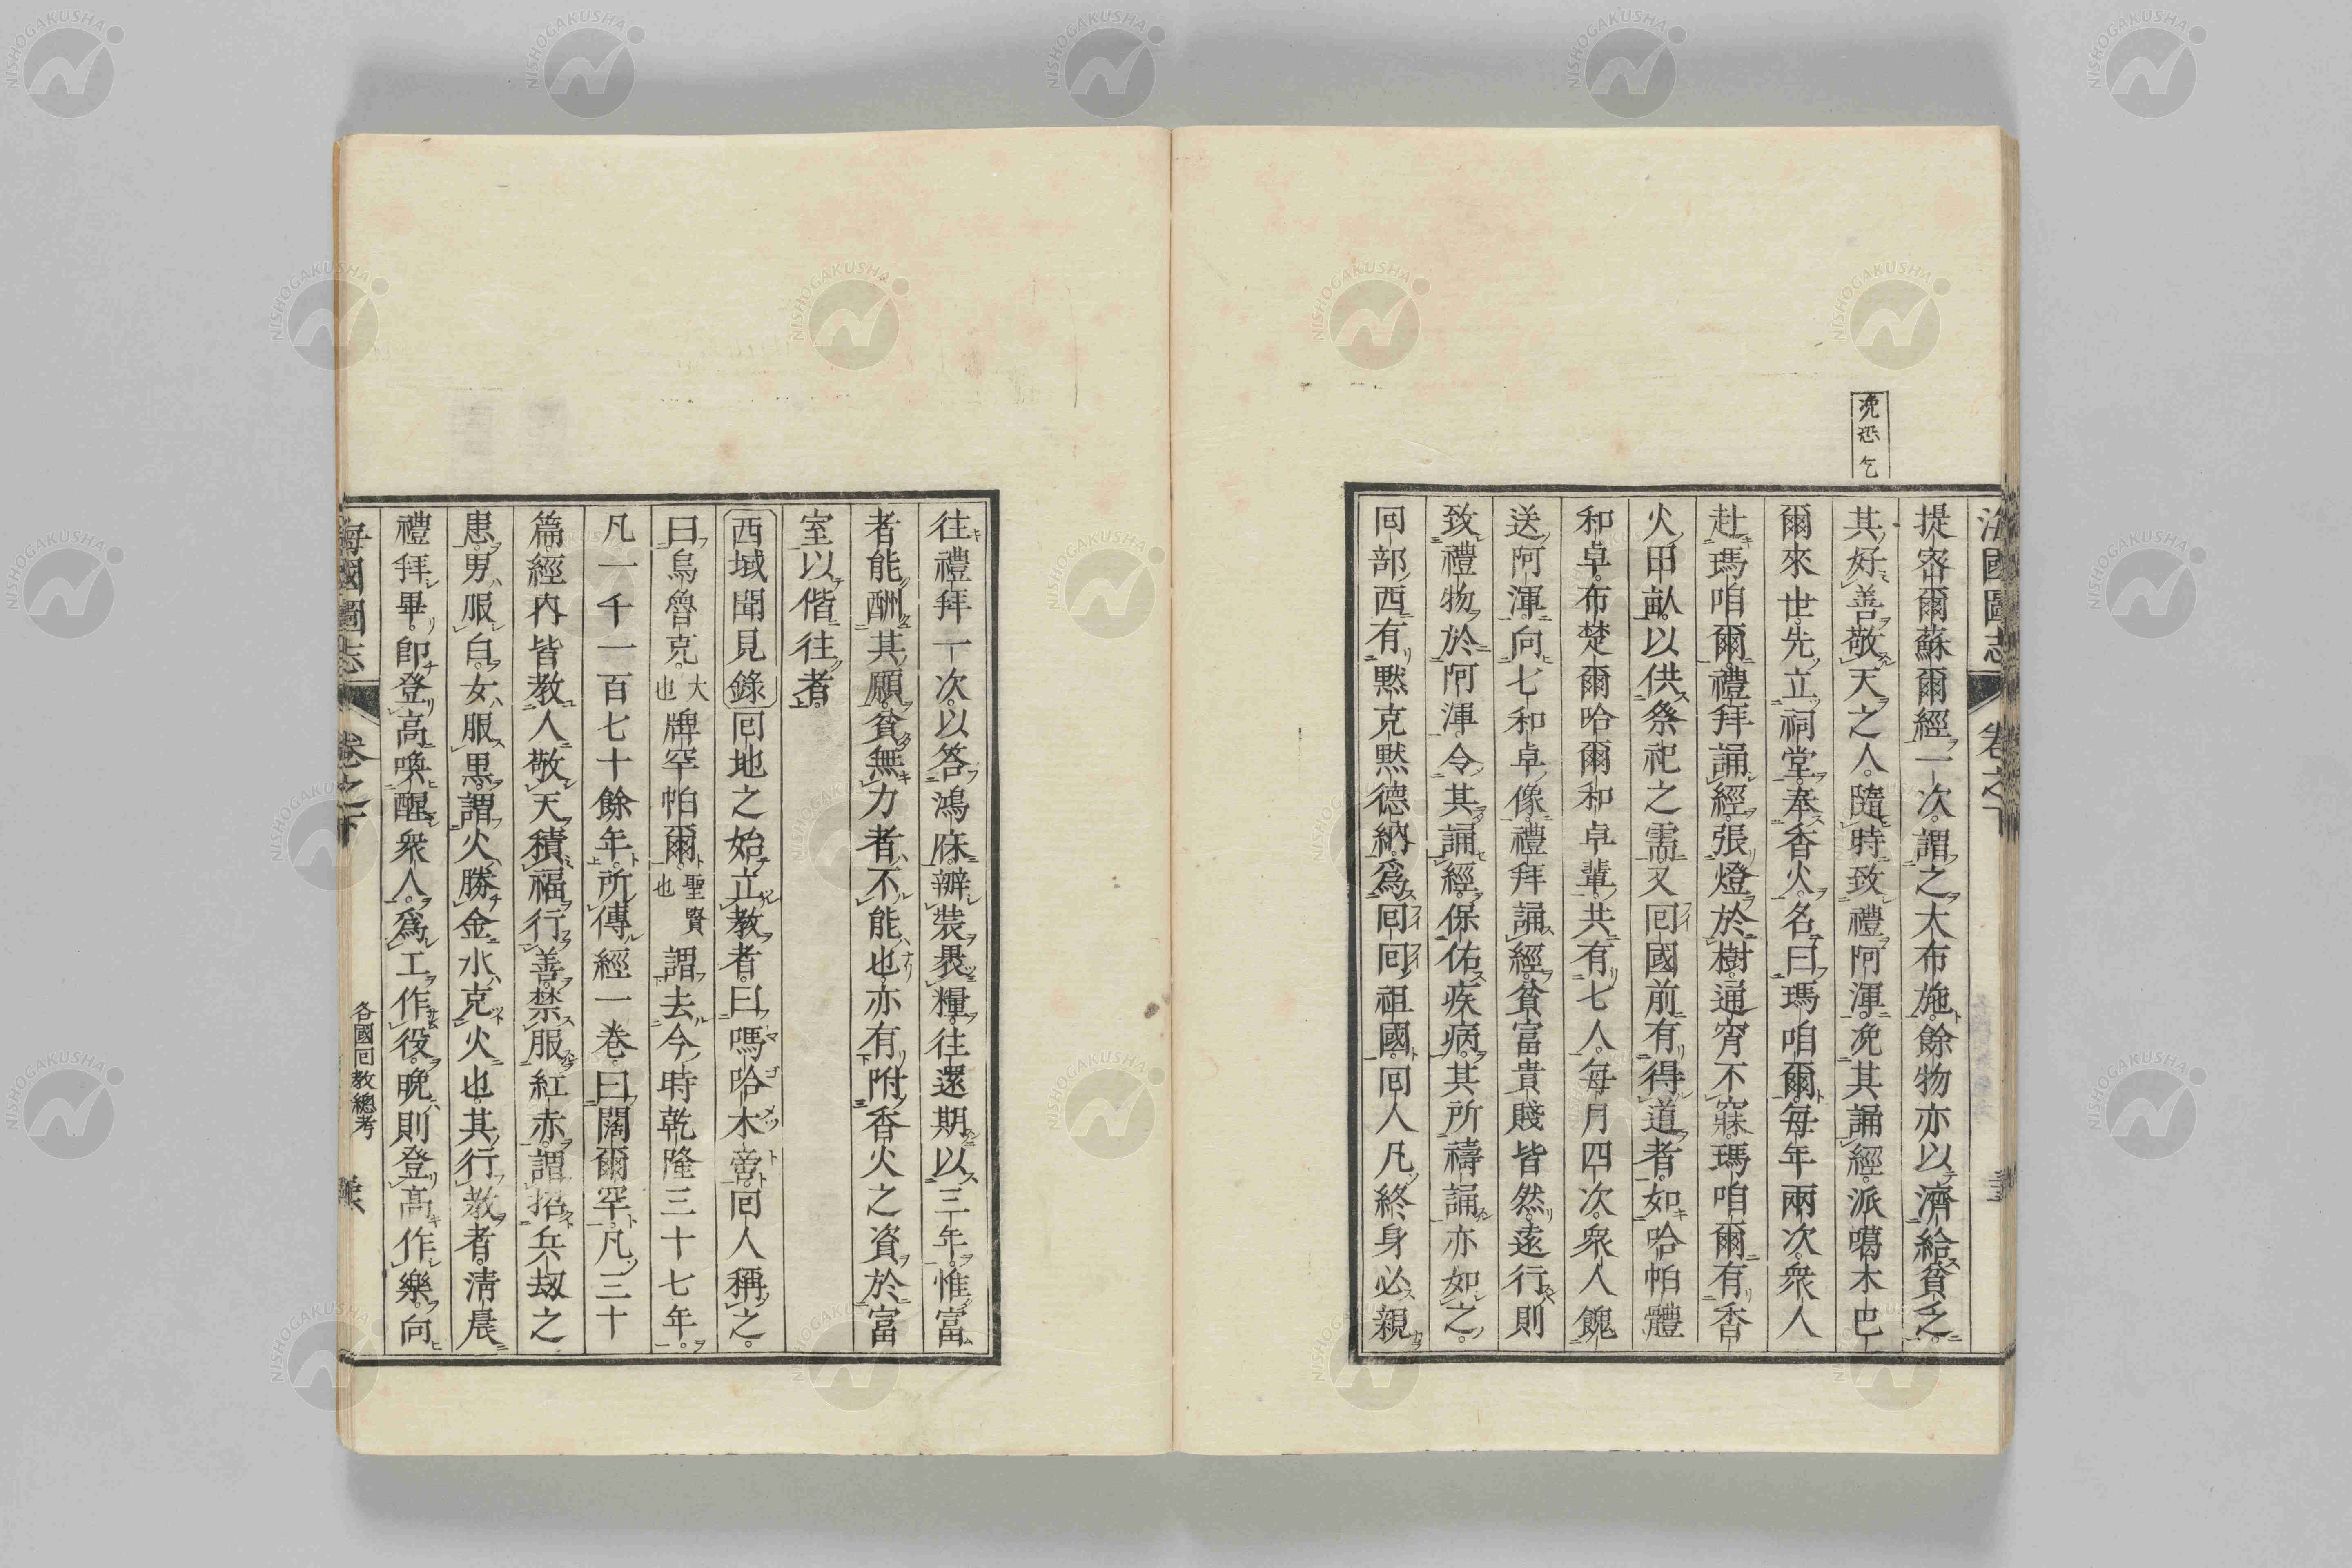 浼恐乞
海國圖志 卷之下
提密爾蘇爾經一次。謂之大布施。餘物亦以濟給貧乏。
其好善敬天之人。隨時致禮阿渾。浼其誦經。派噶木巴
爾來世。先立祠堂。奉香火。名曰瑪咱爾。每年兩次。衆人
赴瑪咱爾。禮拜誦經。張燈於樹。通宵不寐。瑪咱爾有香
火田畝。以供祭祀之需。又回國前有得道者。如哈帕體
和卓。布楚爾哈爾和卓輩。共有七人。每月四次。衆人餽
送阿渾。向七和卓像。禮拜誦經。貧富貴賤皆然。遠行則
致禮物於阿渾。令其誦經。保佑疾病。其所禱誦亦如之。
回部西有默克默德納。爲回回祖國。回人凡終身必親
往禮拜一次。以答鴻庥。辦裝裹糧。往還期以三年。惟富
者能酬其願。貧無力者。不能也。亦有附香火之資於富
室以偕往者。
西域聞見錄 回地之始立教者。曰嗎哈木帝。回人稱之。
曰烏魯克。大也 牌罕帕爾。聖賢也 謂去今時乾隆三十七年。
凡一千一百七十餘年。所傳經一卷。曰闊爾罕。凡三十
篇。經內皆教人敬天積福行善。禁服紅赤。謂招兵刼之
患。男服白。女服黑。謂火勝金水克火也。其行教者。淸晨
禮拜畢。卽登高喚醒衆人。爲工作役。晚則登高作樂。向
海國圖志 卷之下 各國回教總考